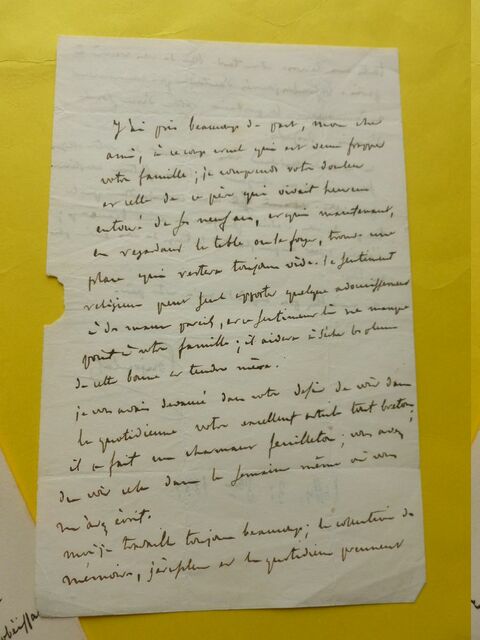 J'ai pris beaucoup de part, mon cher
ami, à ce coup cruel qui est venu frapper
votre famille; je comprends votre douleur
et celle de ce père qui vivait heureux
entouré de ses neuf ans, et qui maintenant,
en regardant la table ou le foyer, trouve une
place qui restera toujours vide. Le sentiment
religieux peut seul apporter quelque adoucissement
à des maux pareils, et ce sentiment là ne manque
point à votre famille; il aidera à sécher les pleurs
de cette bonne et tendre mère.
je vous avais devancé dans votre désir de voir dans
la quotidienne votre excellent article tout breton;
il a fait un charmant feuilleton; vous avez
du voir cela dans la semaine même où vous
m'avez écrit.
moi je travaille toujours beaucoup; la collection de
mémoires, et la quotidienne prennent